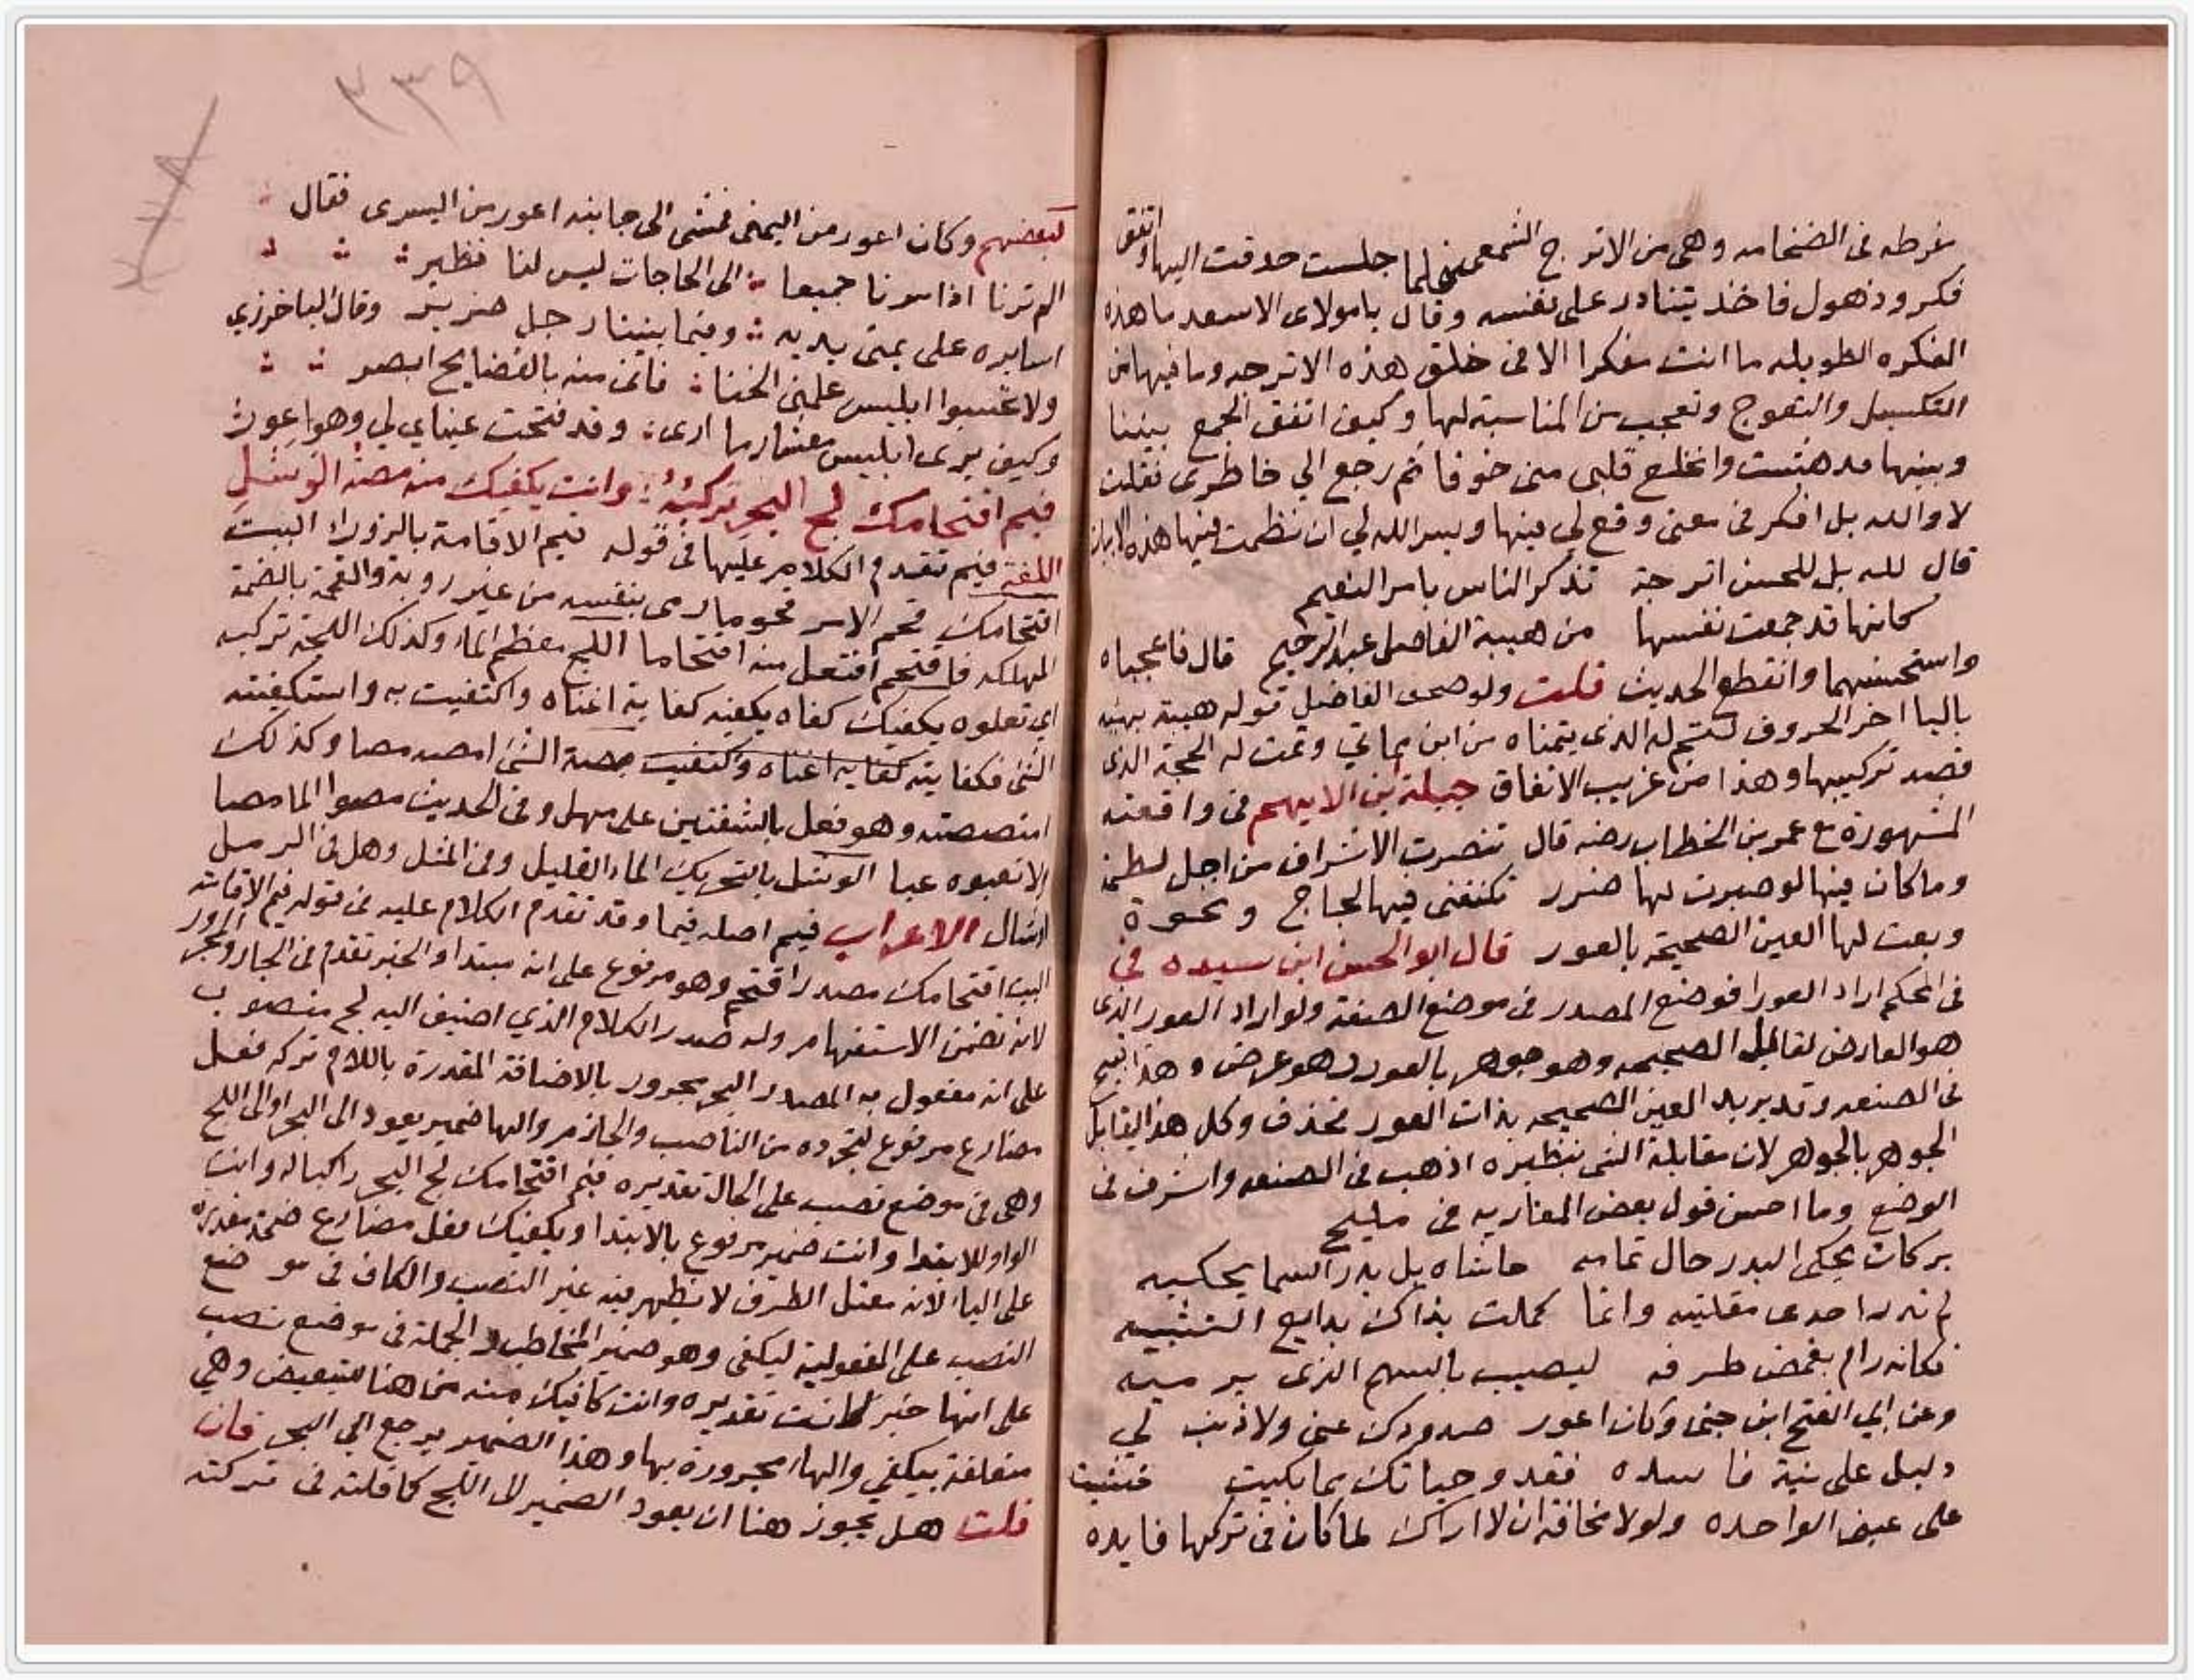 مفرطه فى الضخامه وهى من الاترج الشمعى فلما جلست حدقت اليها واتفق
فكر وذهول فاخذ يتنادر على نفسه وقال يا مولاى الاسعد ما هذه
الفكره الطويله ما انت مفكرا الا فى خلق هذه الاترجه وما فيها من
التكسيل والتعوج وتعجب من المناسبة لها وكيف اتفق الجمع بيننا
وبينها فدهشت وانخلع قلبى منى خوفا ثم رجع الي خاطرى فقلت
لا والله بل افكر فى معنى وقع لي فيها ويسر الله لي ان نظمت فيها هذه الابيات
قال لله بل للحسن اترجة تذكر الناس بامر النعيم
كانها قد جمعت نفسها من هيبة الفاضل عبد الرحيم قال فاعجباه
واستحسنهما وانقطع الحديث قلت ولو صحف الفاضل قوله هيبة بهيئه
باليا اخر الحروف لتتم له الذى يتمناه من ابن مماتي وتمت له الحجة الذى
قصد تركيبها وهذا من غريب الاتفاق جبلة ابن الايهم فى واقعته
المشهورة مع عمر بن الخطاب رضه قال تنصرت الاشراف من اجل لطمة
وما كان فيها لو صبرت لها ضرر تكنفنى فيها لجاج ونخوة
وبعت لها العين الصحيحة بالعور قال ابو الحسن ابن سيده في
فى المحكم اراد العورا فوضع المصدر فى موضع الصفة ولو اراد العور الذى
هو العارض لقابل الصحيحه وهو جوهر بالعور وهو عرض وهذا قبيح
فى الصنعه وقد يريد العين الصحيحه بذات العور فحذف وكل هذا ليقابل
الجوهر بالجوهر لان مقابلة الشى بنظيره اذهب فى الصنعه واشرف فى
الوضع وما احسن قول بعض المغاربه فى مليح
بركات يحكى البدر حال تمامه حاشاه بل بدر السما يحكيه
لم تدر احدى مقلتيه وانما كملت بذاك بدايع التشبيه
فكانه رام بغمض طرفه ليصيب بالسهم الذى يرميه
وعن ابي الفتح ابن جنى وكان اعور صدودك عنى ولا ذنب لي
دليل على نية فاسده فقد وحياتك مما بكيت خشيت
على عينى الواحده ولولا مخافة ان لا اراك لما كان فى تركها فايده
٣٣٩
لبعضهم وكان اعور من اليمنى فمشى الى جانبه اعور من اليسرى فقال
الم ترنا اذا سرنا جميعا الى الحاجات ليس لنا نظير
اسايره على يمنى يديه وفيما بيننا رجل ضرير وقال الباخرزي
ولا تحسبوا ابليس علمنى الخنا فانى منه بالفضايح ابصر
وكيف يرى ابليس معشار ما ارى وقد فتحت عيناي لي وهو اعور
فيم اقتحامك لج البحر تركبه وانت يكفيك منه مصة الوشل
اللغة فيم تقدم الكلام عليها فى قوله فيم الاقامة بالزورا البيت
اقتحامك قحم الامر قحوما رمى بنفسه من غير روية والقحمة بالضمة
المهلكه فاقتحم افتعل منه اقتحاما اللج معظم الماء وكذلك اللجة تركبه
اى تعلوه يكفيك كفاه يكفيه كفاية اغناه واكتفيت به واستكفيته
الشى فكفايته كفاية اغناه واكتفيت مصة الشى امصه مصا وكذلك
امتصصته وهو فعل بالشفتين على مهل وفى الحديث مصوا الما مصا
الا تعبوه عبا الوشل بالتحريك الماء القليل وفى المثل وهل فى الرمل
اوشال الاعراب فيم اصله فيما وقد تقدم الكلام عليه فى قوله فيم الاقامة
البيت اقتحامك مصدر اقتحم وهو مرفوع على انه مبتدا والخبر تقدم فى الجار والمجرور
لانه تضمن الاستفهام وله صدر الكلام الذي اضيف اليه لج منصوب
على انه مفعول به المصدر البحر مجرور بالاضافة المقدرة باللام تركبه فعل
مضارع مرفوع لتجرده من الناصب والجازم والها ضمير يعود الى البحر او الى اللج
وهى فى موضع نصب على الحال تقديره فيم اقتحامك لج البحر راكبا له وانت
الواو للابتدا وانت ضمير مرفوع بالابتدا ويكفيك فعل مضارع ضمة مقدرة
على الياء لانه معتل الطرف لا يظهر فيه غير النصب والكاف فى موضع
النصب على المفعولية ليكفى وهو ضمير المخاطب والجملة فى موضع نصب
على انها خبر لانت تقديره وانت كافيك منه من هنا للتبعيض وهي
متعلقة بيكفي والهاء مجرورة بها وهذا الضمير يرجع الي البحر فان
قلت هل يجوز هنا ان يعود الضمير الى اللج كما قلته فى تركته